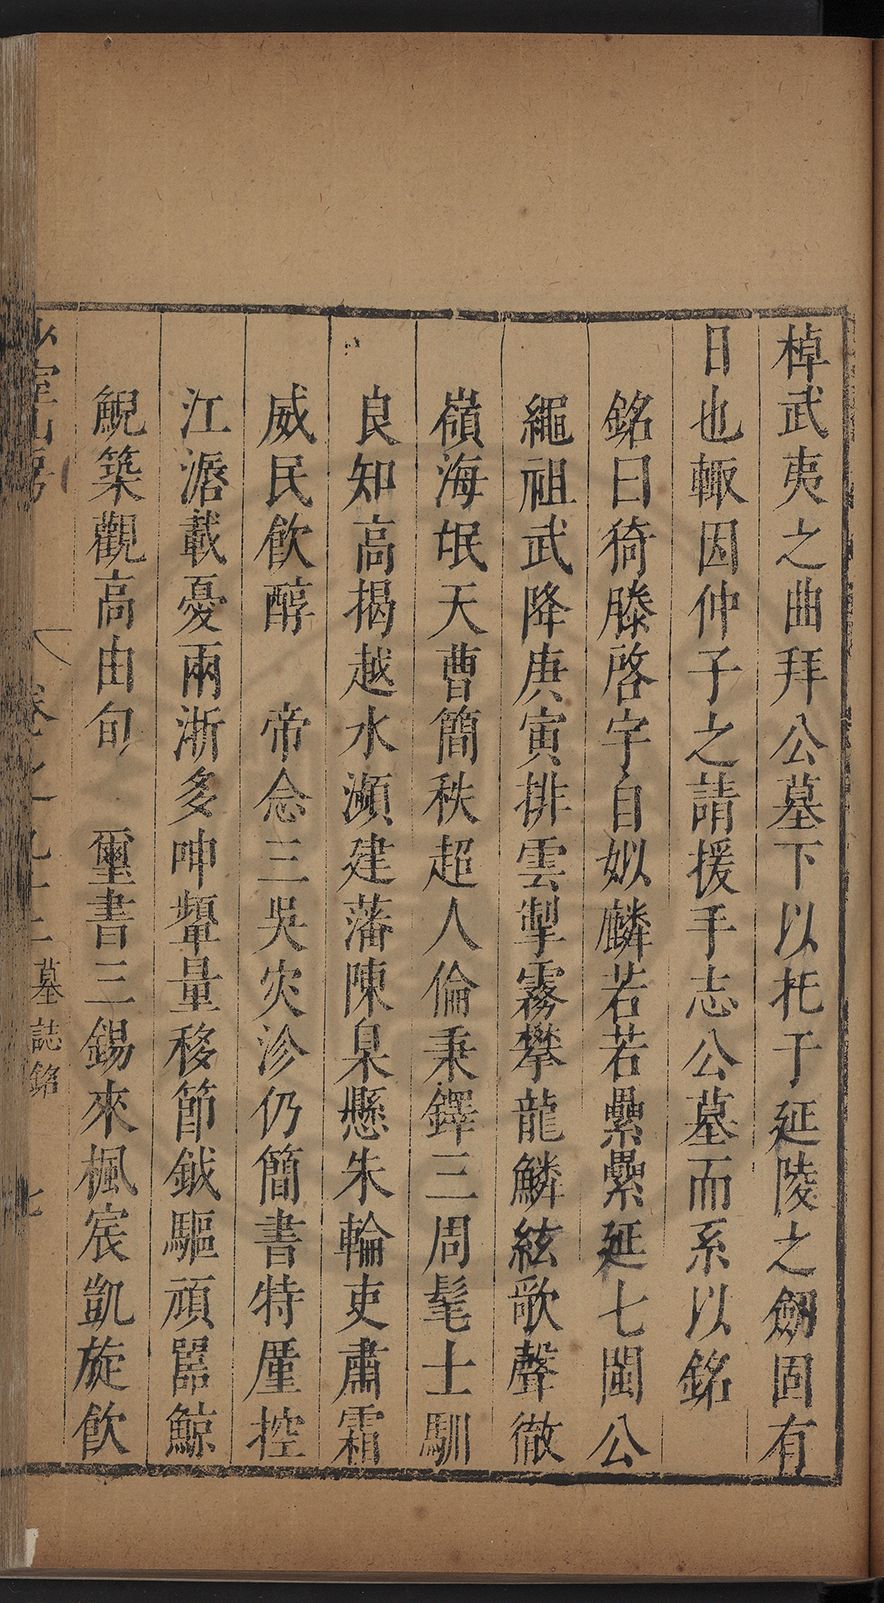 棹武夷之曲拜公墓下以托于延陵之劒固有
日也輙因仲子之請援手志公墓而系以銘
銘曰猗滕啓宇自姒麟若若纍纍延七閩公
繩祖武降庚寅排雲掣霧攀龍鱗絃歌聲徹
嶺海氓天曹簡秩超人倫秉鐸三周髦士馴
良知高揭越水瀕建藩陳臬懸朱輪吏肅霜
威民飲醇　帝念三吳灾沴仍簡書特厪控
江湣載憂兩浙多呻顰量移節鉞驅頑嚚鯨
鯢築觀高由旬　璽書三錫來楓宸凱旋飲
少室山房
卷之九十三 墓誌銘 七